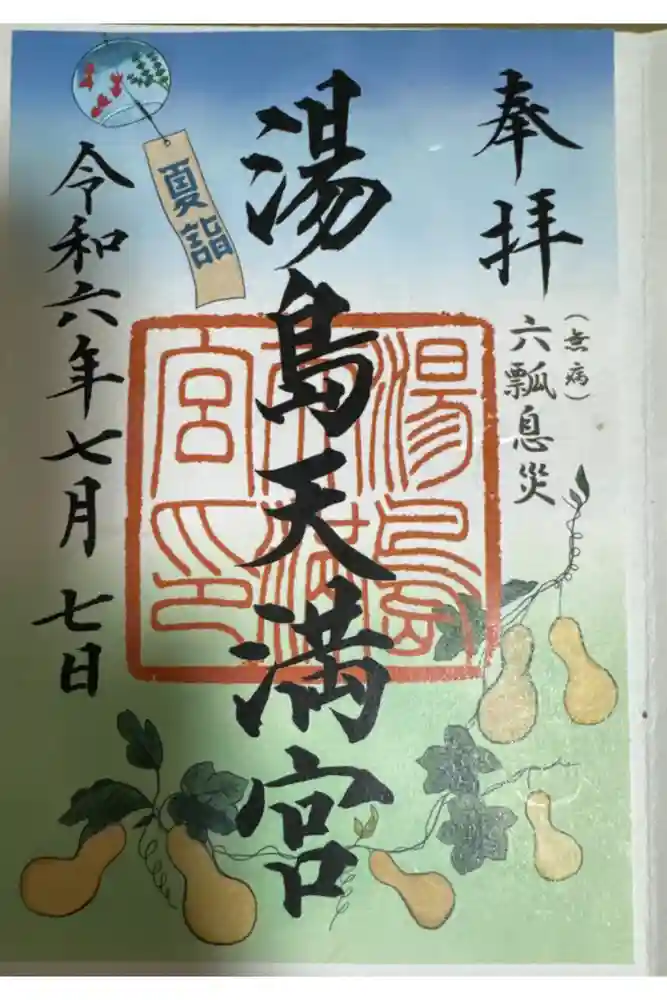 奉拝
(無病)
六瓢息災
湯島天満宮
湯島天満宮印
夏詣
令和六年七月七日